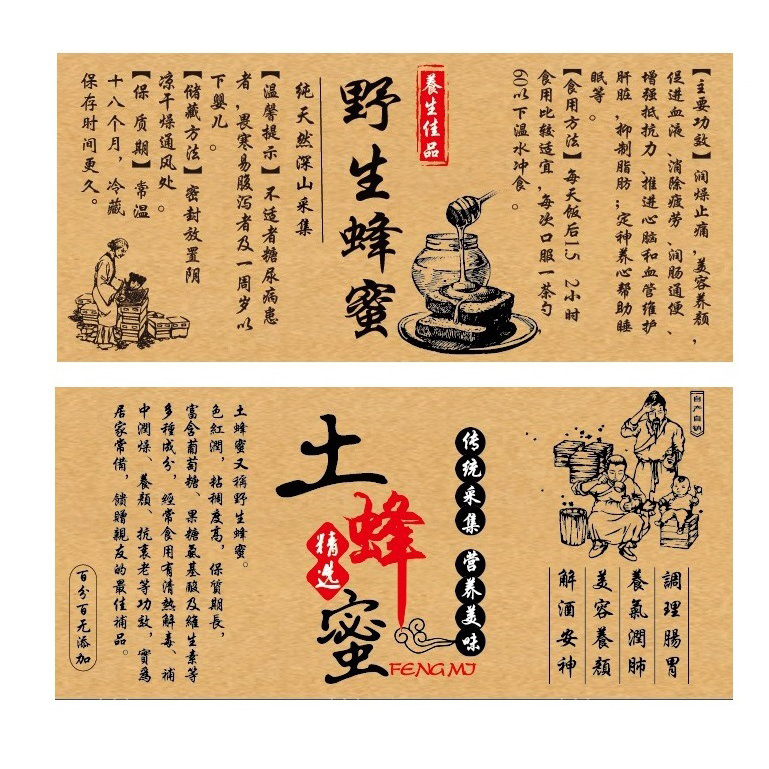 【主要功效】润燥止痛，美容养颜，
促进血液、消除疲劳、润肠通便、
增强抵抗力、推进心脑和血管维护
肝脏，抑制脂肪；定神养心帮助睡
眠等。
【食用方法】每天饭后1.5 2小时
食用比较适宜，每次口服一茶勺
60以下温水冲食。
養生佳品
野生蜂蜜
纯天然深山采集
【温馨提示】不适者糖尿病患
者，畏寒易腹泻者及一周岁以
下婴儿。
【储藏方法】密封放置阴
凉干燥通风处。
【保质期】常温
十八个月，冷藏
保存时间更久。
自产自销
調理腸胃
養氣潤肺
美容養顏
解酒安神
传统采集 营养美味
土蜂蜜
精选
FENG MI
土蜂蜜又稱野生蜂蜜。
色紅潤，粘稠度高，保質期長，
富含葡萄糖、果糖氨基酸及維生素等
多種成分，經常食用有清熱解毒、補
中潤燥、養顏、抗衰老等功效，實爲
居家常備，饋贈親友的最佳補品。
百分百无添加